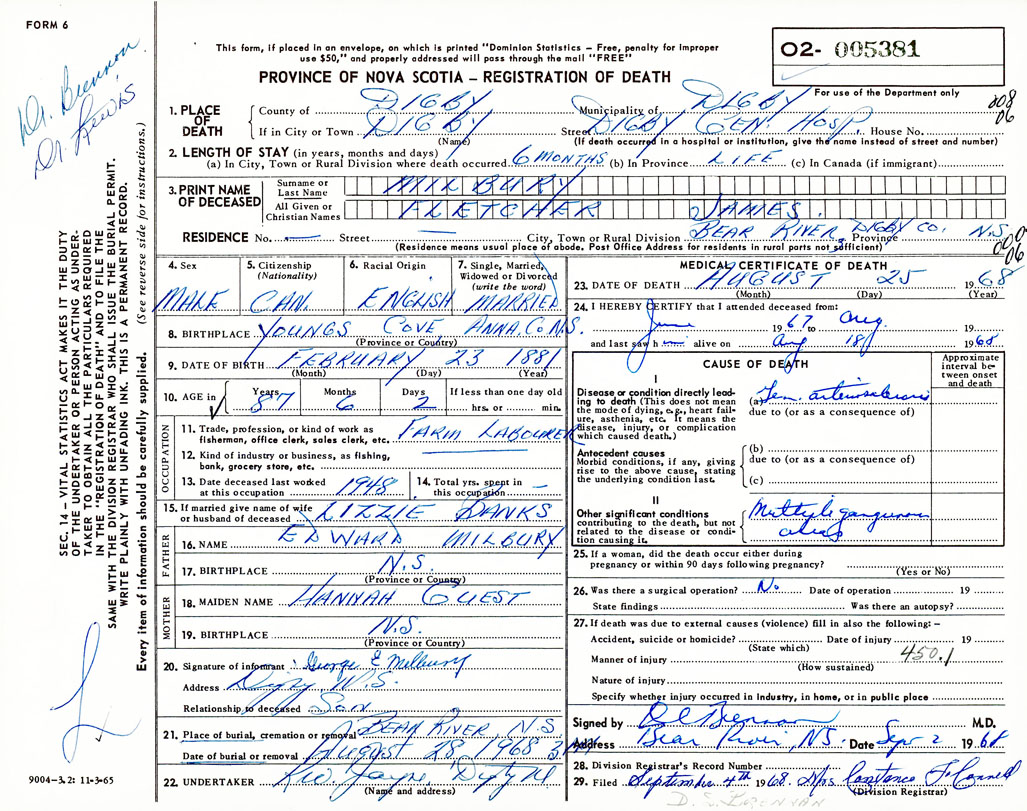 FORM 6
Dr. Brennan
Dr. Lewis
This form, if placed in an envelope, on which is printed "Dominion Statistics – Free, penalty for improper
use $50," and properly addressed will pass through the mail "FREE"
PROVINCE OF NOVA SCOTIA – REGISTRATION OF DEATH
O2- 005381
For use of the Department only
208
06
1. PLACE OF DEATH
County of DIGBY Municipality of DIGBY
If in City or Town DIGBY Street DIGBY GEN. HOSP. House No.
(Name) (If death occurred in a hospital or institution, give the name instead of street and number)
2. LENGTH OF STAY (in years, months and days)
(a) In City, Town or Rural Division where death occurred 6 MONTHS (b) In Province LIFE (c) In Canada (if immigrant)
3. PRINT NAME OF DECEASED
Surname or Last Name MILBURY
All Given or Christian Names FLETCHER JAMES.
RESIDENCE No. — Street — City, Town or Rural Division BEAR RIVER, DIGBY CO. Province N.S.
(Residence means usual place of abode. Post Office Address for residents in rural parts not sufficient)
000
06
4. Sex MALE
5. Citizenship (Nationality) CAN.
6. Racial Origin ENGLISH
7. Single, Married, Widowed or Divorced (write the word) MARRIED
8. BIRTHPLACE YOUNGS COVE ANNA. CO. N.S.
(Province or Country)
9. DATE OF BIRTH FEBRUARY 23 1881
(Month) (Day) (Year)
10. AGE in Years 87 Months 6 Days 2 If less than one day old
hrs. or min.
OCCUPATION
11. Trade, profession, or kind of work as
fisherman, office clerk, sales clerk, etc. FARM LABOURER
12. Kind of industry or business, as fishing,
bank, grocery store, etc.
13. Date deceased last worked
at this occupation 1948
14. Total yrs. spent in
this occupation —
15. If married give name of wife
or husband of deceased LIZZIE BANKS
FATHER
16. NAME EDWARD MILBURY
17. BIRTHPLACE N.S.
(Province or Country)
MOTHER
18. MAIDEN NAME HANNAH GUEST
19. BIRTHPLACE N.S.
(Province or Country)
20. Signature of informant George E Milbury
Address Digby N.S.
Relationship to deceased Son
21. Place of burial, cremation or removal BEAR RIVER, N.S
Date of burial or removal August 28 1968
22. UNDERTAKER
(Name and address)
MEDICAL CERTIFICATE OF DEATH
23. DATE OF DEATH AUGUST 25 1968
(Month) (Day) (Year)
24. I HEREBY CERTIFY that I attended deceased from:
June 1967 to Aug. 19
and last saw him alive on Aug 18 1968
CAUSE OF DEATH
Approximate interval between onset and death
I
Disease or condition directly leading to death (This does not mean
the mode of dying, e.g., heart failure, asthenia, etc. It means the
disease, injury, or complication
which caused death.)
(a) Gen. arteriosclerosis
due to (or as a consequence of)
Antecedent causes
Morbid conditions, if any, giving
rise to the above cause, stating
the underlying condition last.
(b)
due to (or as a consequence of)
(c)
II
Other significant conditions
contributing to the death, but not
related to the disease or condition causing it.
Multiple gangrenous
ulcers
25. If a woman, did the death occur either during
pregnancy or within 90 days following pregnancy?
(Yes or No)
26. Was there a surgical operation? No Date of operation 19
State findings Was there an autopsy?
27. If death was due to external causes (violence) fill in also the following: –
Accident, suicide or homicide? Date of injury 19
(State which)
Manner of injury 450.1
(How sustained)
Nature of injury
Specify whether injury occurred in industry, in home, or in public place
Signed by Brennan M.D.
Address Bear River, N.S. Date Sep 2 1968
28. Division Registrar's Record Number
29. Filed September 4th 1968 Mrs Constance
(Division Registrar)
SEC. 14 – VITAL STATISTICS ACT MAKES IT THE DUTY
OF THE UNDERTAKER OR PERSON ACTING AS UNDERTAKER TO OBTAIN ALL THE PARTICULARS REQUIRED
IN THE "REGISTRATION OF DEATH" AND TO FILE THE
SAME WITH THE DIVISION REGISTRAR WHO SHALL ISSUE THE BURIAL PERMIT.
WRITE PLAINLY WITH UNFADING INK. THIS IS A PERMANENT RECORD.
Every item of information should be carefully supplied. (See reverse side for instructions.)
9004–3.2: 11-3-65